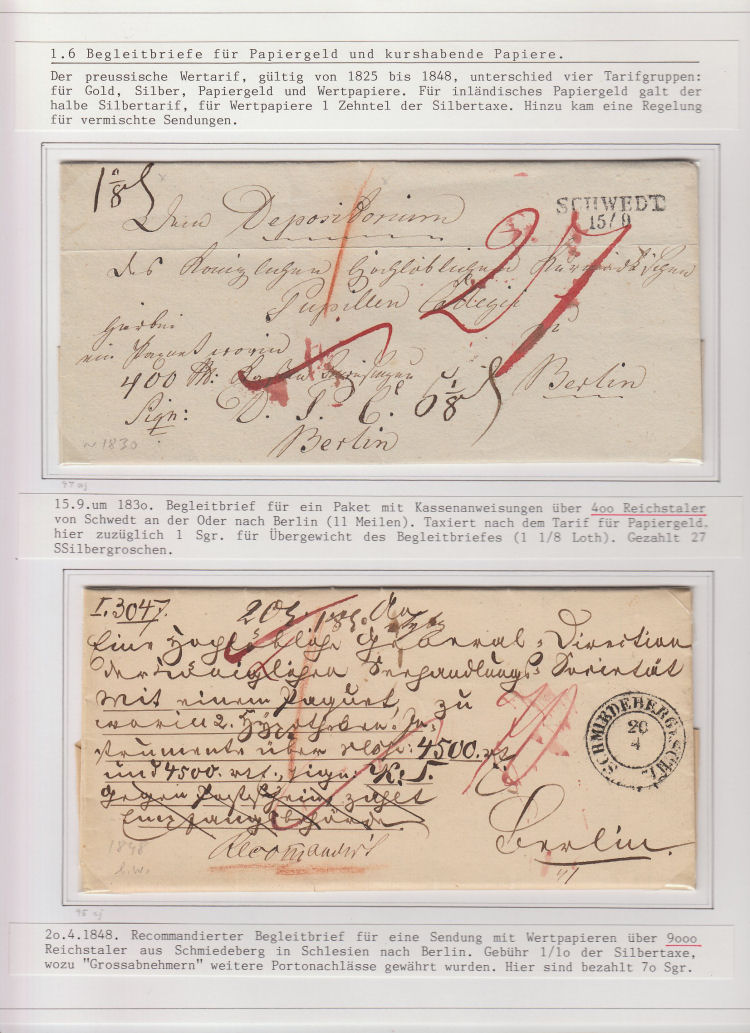 1.6 Begleitbriefe für Papiergeld und kurshabende Papiere.
Der preussische Wertarif, gültig von 1825 bis 1848, unterschied vier Tarifgruppen:
für Gold, Silber, Papiergeld und Wertpapiere. Für inländisches Papiergeld galt der
halbe Silbertarif, für Wertpapiere 1 Zehntel der Silbertaxe. Hinzu kam eine Regelung
für vermischte Sendungen.
1 1/8
SCHWEDT
15/9
Dem Depositorium
des Königlichen Hochlöblichen Kurmärkischen
Pupillen Collegii
Hierbei
ein Paquet worin
400
Berlin
Sign: D. P. C. 6 1/8
Berlin
~1830
15.9.um 183o. Begleitbrief für ein Paket mit Kassenanweisungen über 4oo Reichstaler
von Schwedt an der Oder nach Berlin (11 Meilen). Taxiert nach dem Tarif für Papiergeld.
hier zuzüglich 1 Sgr. für Übergewicht des Begleitbriefes (1 1/8 Loth). Gezahlt 27
SSilbergroschen.
I. 3047.
An
Eine Hochlöbliche General-Direction
der Königlichen Seehandlungs-Societät
Mit einem Paquet, zu
worin 2. Hypotheken-In-
strumente über 4500. rt.
und 4500. rtl. sign: K. S.
Gegen Postschein zahlt
Empfangsbehörde.
SCHMIEDEBERG I. SCHL.
20
4
Recomandirt
Berlin.
1848
20.4.1848. Recommandierter Begleitbrief für eine Sendung mit Wertpapieren über 9ooo
Reichstaler aus Schmiedeberg in Schlesien nach Berlin. Gebühr 1/1o der Silbertaxe,
wozu "Grossabnehmern" weitere Portonachlässe gewährt wurden. Hier sind bezahlt 7o Sgr.